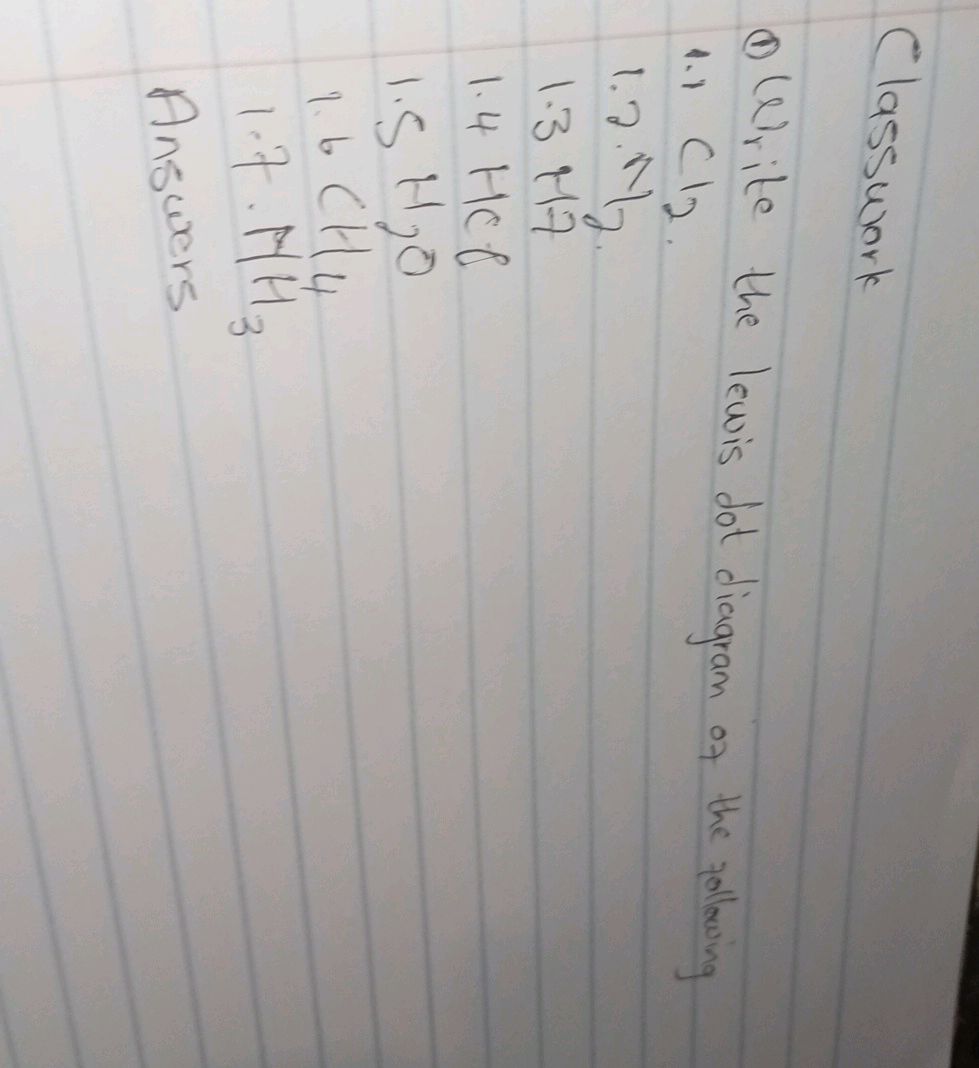 Classwork
① Write the lewis dot diagram of the following
1.1 Cl2.
1.2. N2.
1.3 HF
1.4 HCl
1.5 H2O
1.6 CH4
1.7. NH3
Answers